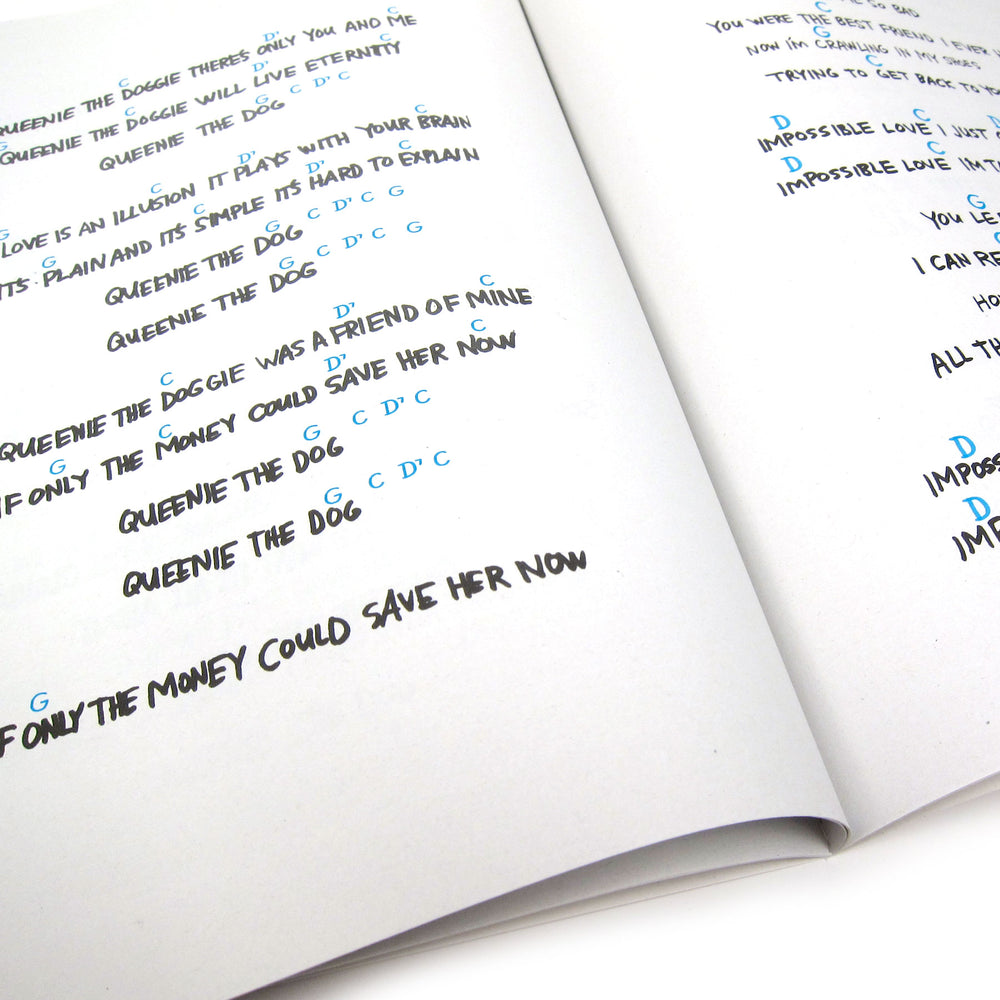 C D' C
QUEENIE THE DOGGIE THERE'S ONLY YOU AND ME
G C D' C
QUEENIE THE DOGGIE WILL LIVE ETERNITTY
G C D' C
QUEENIE THE DOG
G C D' C
LOVE IS AN ILLUSION IT PLAYS WITH YOUR BRAIN
G C D' C
IT'S PLAIN AND IT'S SIMPLE IT'S HARD TO EXPLAIN
G C D' C G
QUEENIE THE DOG
G C D' C G
QUEENIE THE DOG
C D' C
QUEENIE THE DOGGIE WAS A FRIEND OF MINE
G C D' C
IF ONLY THE MONEY COULD SAVE HER NOW
G C D' C
QUEENIE THE DOG
G C D' C
QUEENIE THE DOG
G
IF ONLY THE MONEY COULD SAVE HER NOW
SO BAD
C
YOU WERE THE BEST FRIEND I EVER
G
NOW I'M CRAWLING IN MY SHOES
C
TRYING TO GET BACK TO
D C D
IMPOSSIBLE LOVE I JUST
D C
IMPOSSIBLE LOVE I'M
G
YOU
I CAN
ALL
D
D